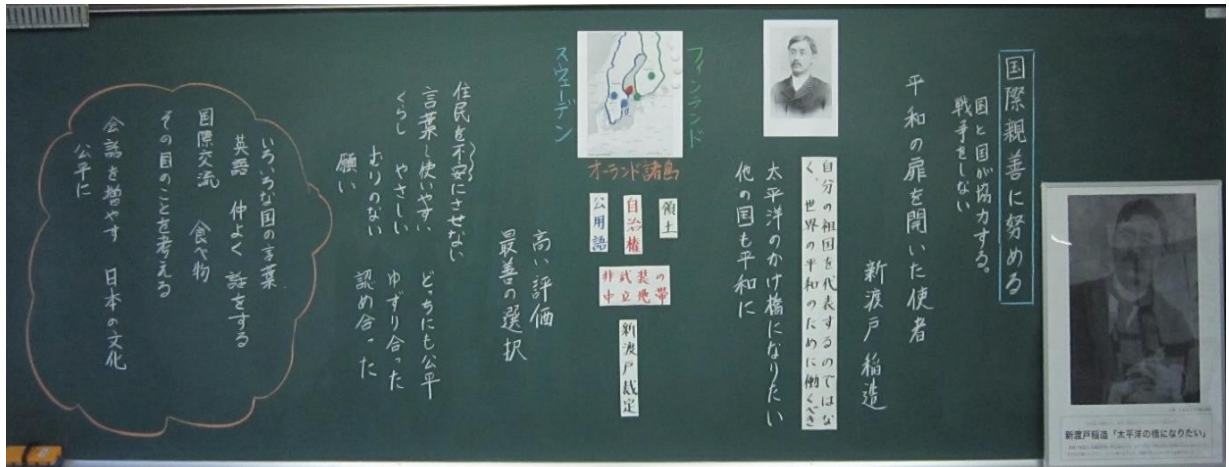 国際親善に努める
国と国が協力する。
戦争をしない
平和の扉を開いた使者
新渡戸 稲造
自分の祖国を代表するのではな
く、世界の平和のために働くべき
太平洋のかけ橋になりたい
他の国も平和に
フィンランド
スウェーデン
オーランド諸島
領土
自治権
公用語
非武装の
中立地帯
新渡戸裁定
高い評価
最善の選択
住民を不安にさせない
言葉も使いやすい
くらし やさしい
むりのない
願い
どっちにも公平
ゆずり合った
認め合った
いろいろな国の言葉
英語 仲よく 話をする
国際交流 食べ物
その国のことを考える
会話を増やす 日本の文化
公平に
新渡戸稲造「太平洋の橋になりたい」